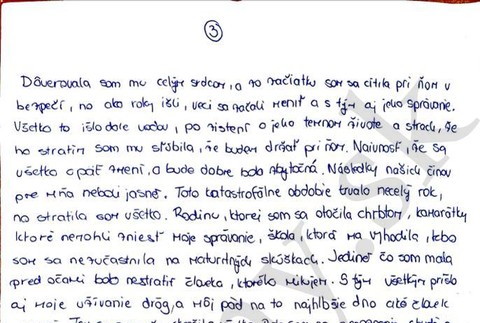 3
Dôverovala som mu celým srdcom, a zo začiatku som sa cítila pri ňom v
bezpečí, no ako roky išli, veci sa začali meniť a s tým aj jeho správanie.
Všetko to išlo dole vodou, po zistení o jeho temnom živote a strach, že
ho stratím som mu sľúbila, že budem držať pri ňom. Naivnosť, že sa
všetko opäť zmení, a bude dobre bola zbytočná. Následky našich činov
pre mňa neboli jasné. Toto katastrofálne obdobie trvalo necelý rok,
no stratila som všetko. Rodinu, ktorej som sa otočila chrbtom, kamarátky
ktoré nemohli zniesť moje správanie, škola, ktorá ma vyhodila, lebo
som sa nezúčastnila na maturitných skúškach. Jediné čo som mala
pred očami bolo nestratiť človeka, ktorého milujem. S tým všetkým prišlo
aj moje užívanie drog, a môj pád na to najhlbšie dno aké človek